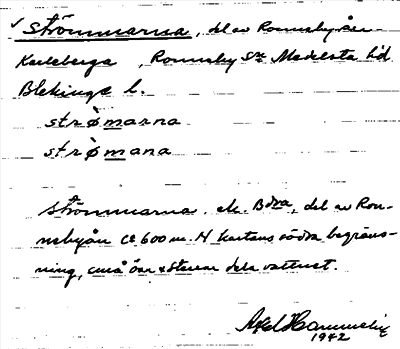 ✓ Strömmarna, del av Ronnebyån
Karleberga, Ronneby Sn Medelsta hd
Blekinge l.
strø̀marna
strø̀mana
Strömmarna, del av Ron-
nebyån ca 600 m. N kartans södra begräns-
ning, små öar & stenar dela vattnet.
Axel
1942